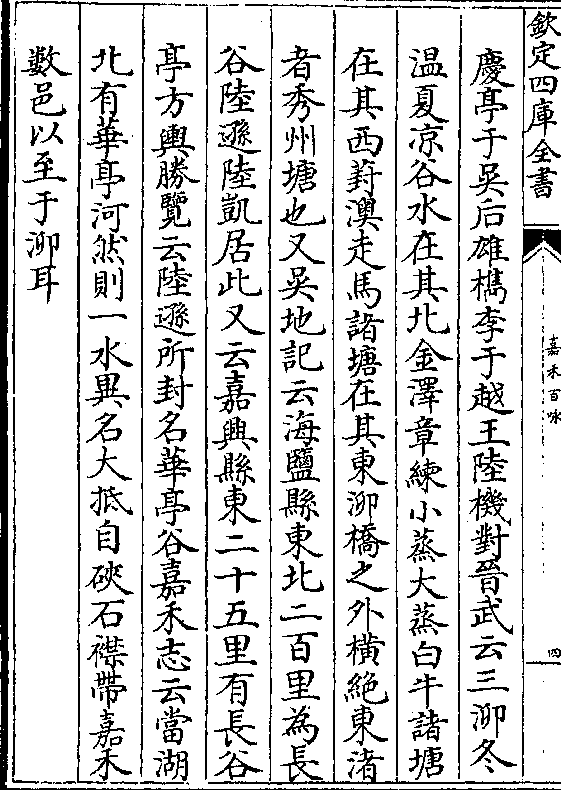 欽定四庫全書
嘉禾百咏
四
慶亭于吳后雄檇李于越王陸機對晉武云三泖冬
溫夏凉谷水在其北金澤章練小蒸大蒸白牛諸塘
在其西葑澳走馬諸塘在其東泖橋之外橫絶東渚
者秀州塘也又吳地記云海鹽縣東北二百里為長
谷陸遜陸凱居此又云嘉興縣東二十五里有長谷
亭方輿勝覽云陸遜所封名華亭谷嘉禾志云當湖
北有華亭河然則一水異名大抵自硤石襟帶嘉禾
數邑以至于泖耳